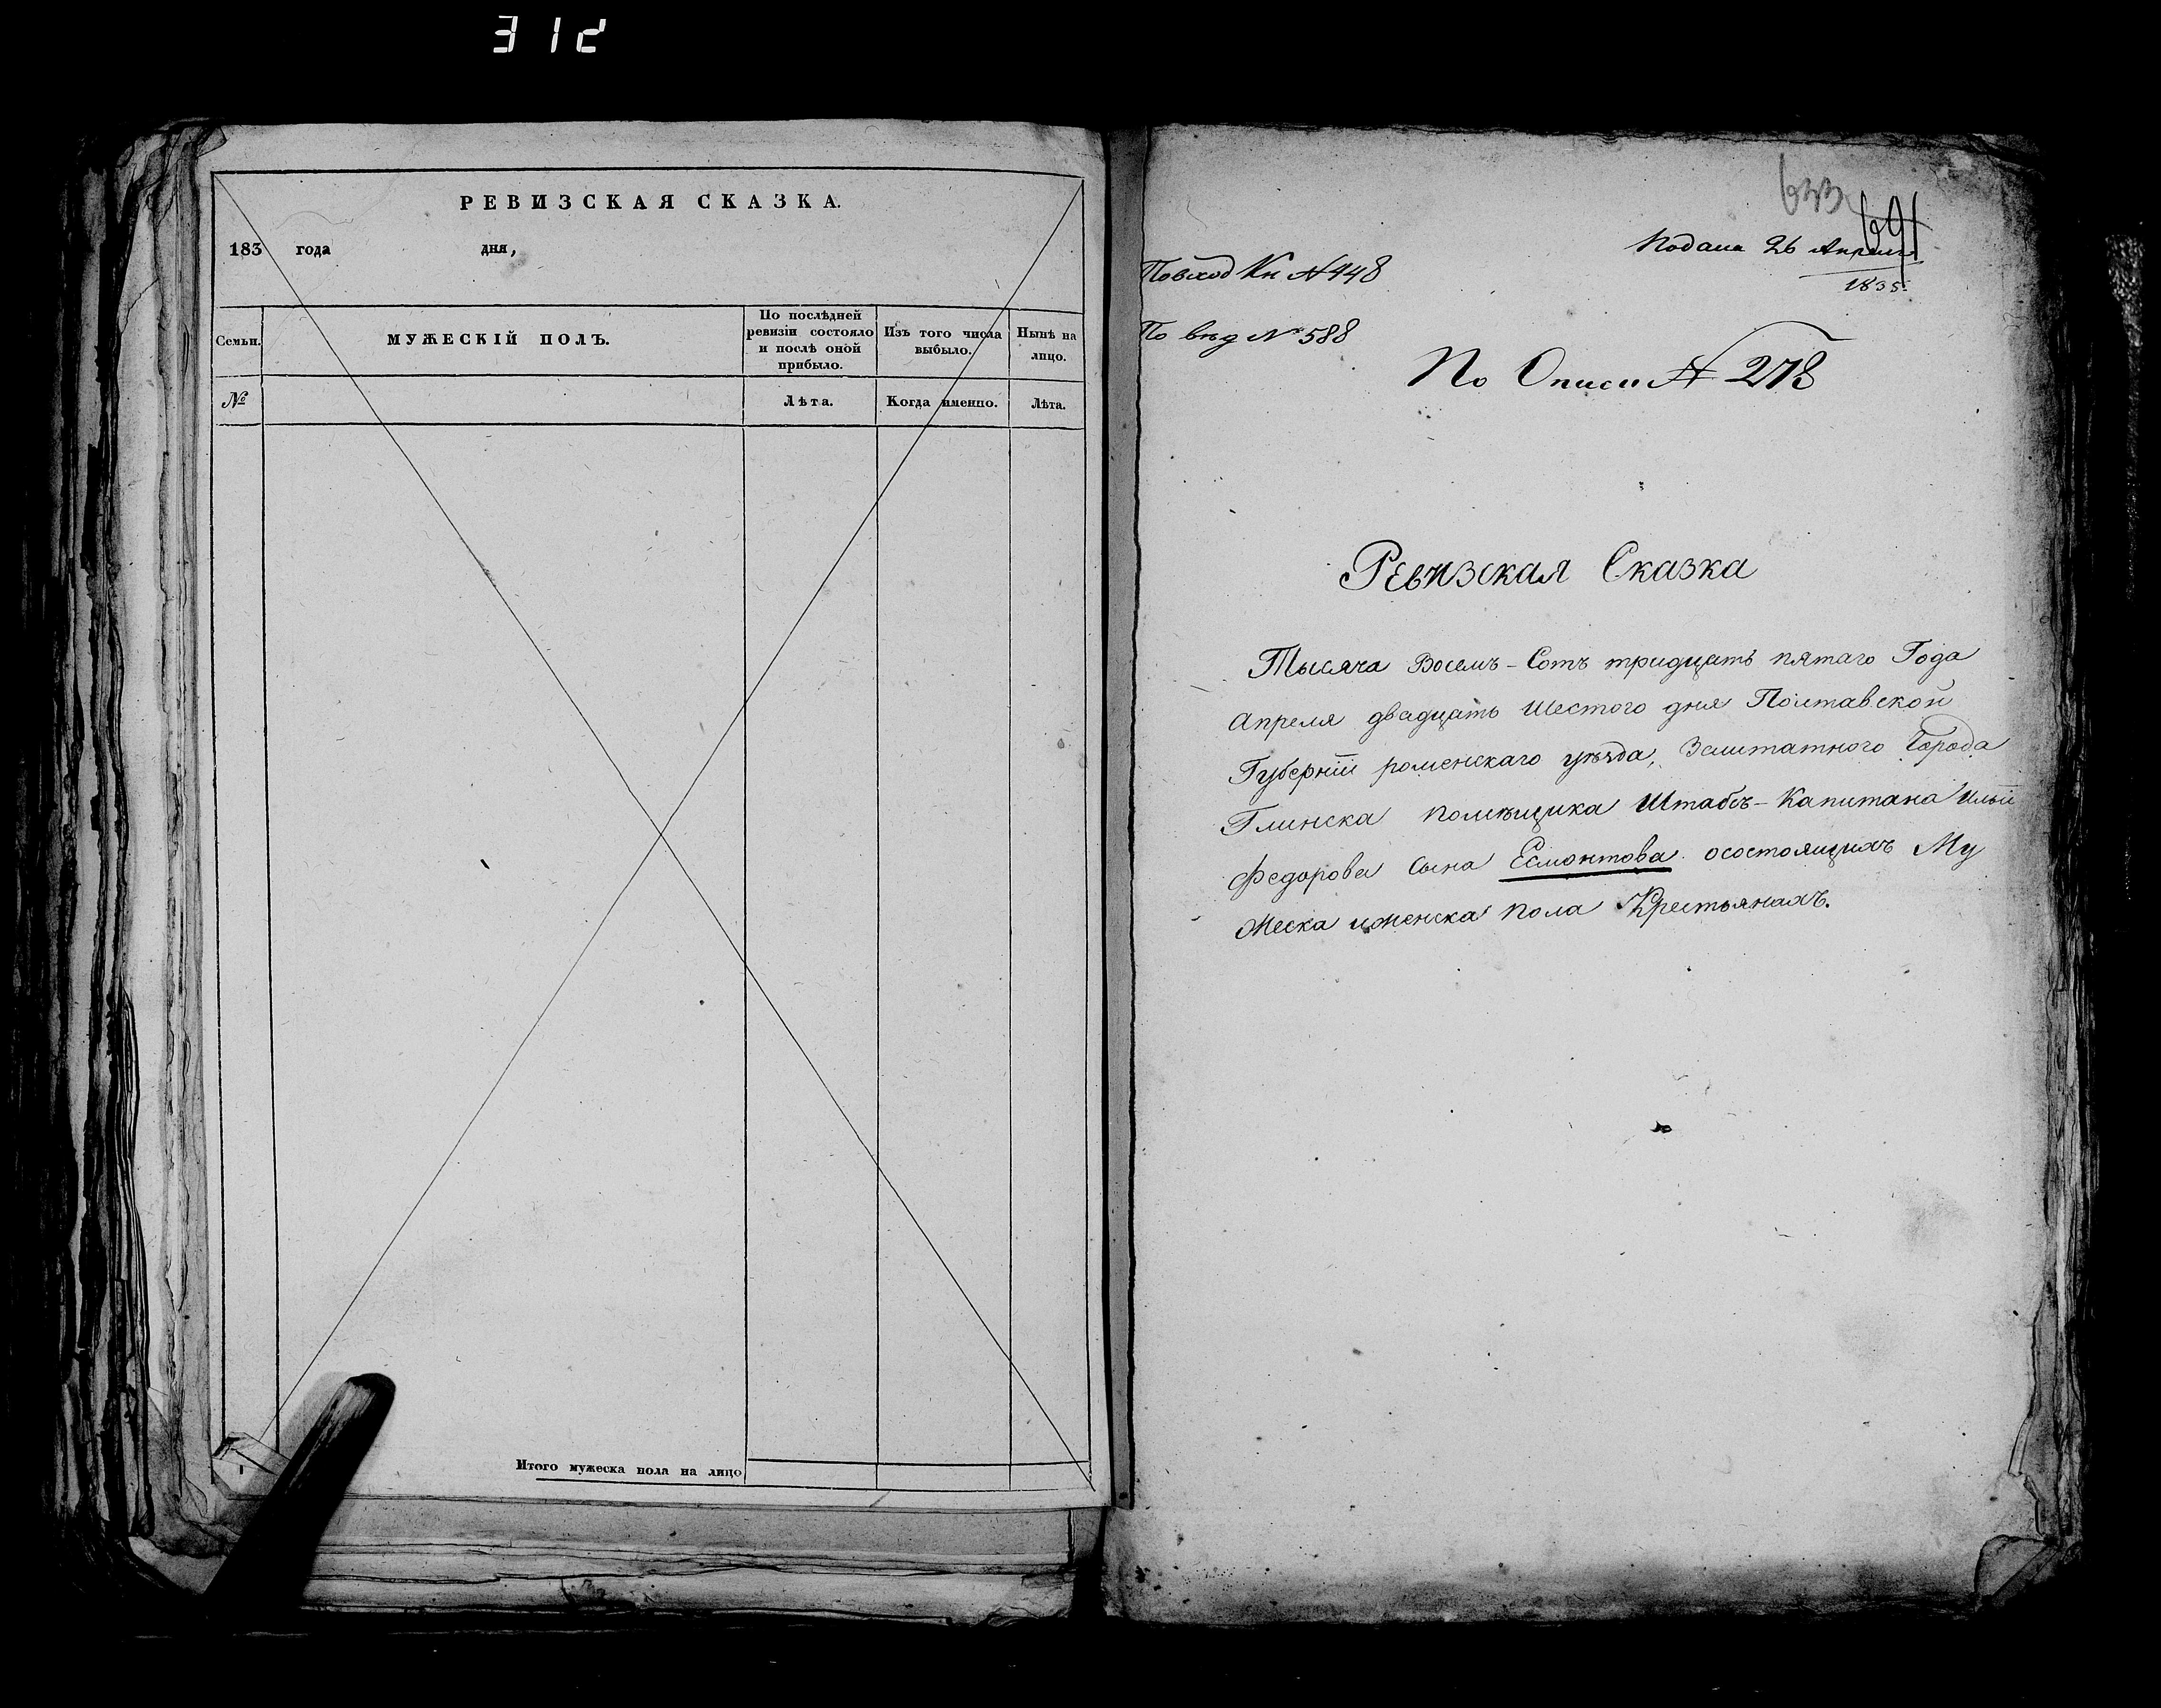 312
РЕВИЗСКАЯ СКАЗКА.
183 года дня,
Семьи.
МУЖЕСКІЙ ПОЛЪ.
По послѣдней
ревизіи состояло
и послѣ оной
прибыло.
Изъ того числа
выбыло.
Нынѣ на
лицо.
№
Лѣта.
Когда именно.
Лѣта.
Итого мужеска пола на лицо
633
691
Подана 26 Апреля
1835.
По вход Кн №448
По вѣд № 588
По Описи № 278
Ревизская Сказка
Тысяча Восемъ-Сотъ тридцать пятаго Года
Апреля двадцать Шестого дня Полтавской
Губерніи роменскаго уѣзда, Заштатного Города
Глинска помѣщика Штабсъ-Капитана Ильи
Федорова Сына Есмонтова осостоящихъ Му
жеска иженска пола Крестьянахъ.